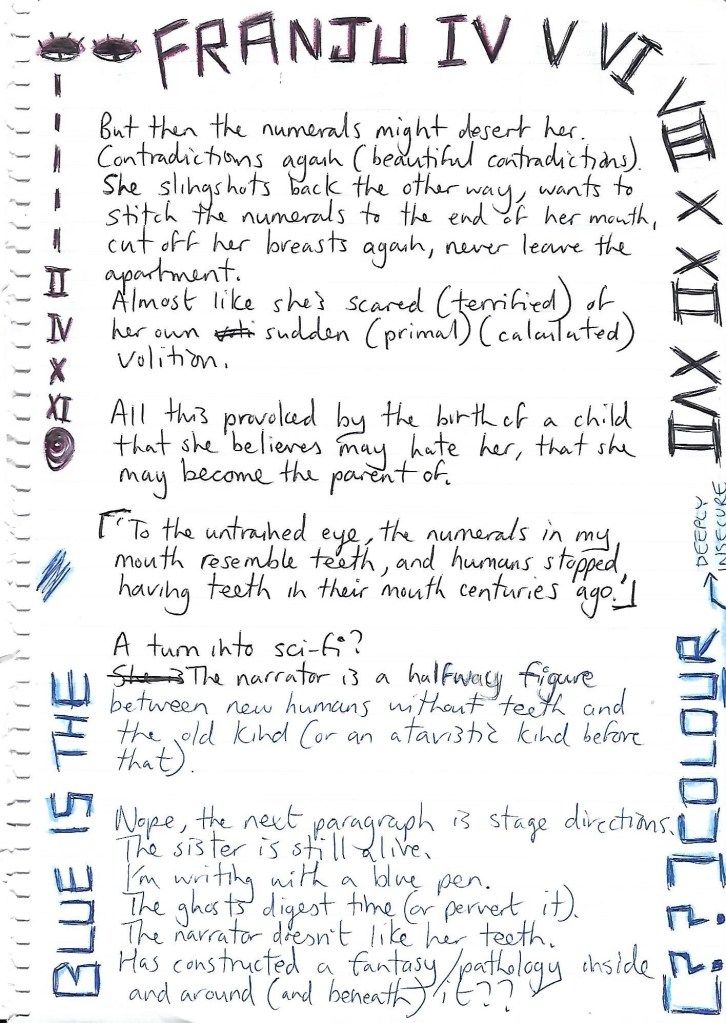 FRANJU IV V VI VIII X XII XVII
II
IV
X
XI
But then the numerals might desert her.
Contradictions again (beautiful contradictions).
She slingshots back the other way, wants to
stitch the numerals to the end of her mouth,
cut off her breasts again, never leave the
apartment.
Almost like she's scared (terrified) of
her own sudden (primal) (calculated)
volition.
All this provoked by the birth of a child
that she believes may hate her, that she
may become the parent of.
「'To the untrained eye, the numerals in my
mouth resemble teeth, and humans stopped
having teeth in their mouth centuries ago.'」
A turn into sci-fi?
She is The narrator is a halfway figure
between new humans without teeth and
the old kind (or an atavistic kind before
that).
Nope, the next paragraph is stage directions.
The sister is still alive.
I'm writing with a blue pen.
The ghosts digest time (or pervert it).
The narrator doesn't like her teeth.
Has constructed a fantasy/pathology inside
and around (and beneath) it??
BLUE IS THE
[??] COLOUR
→ DEEPLY
INSECURE